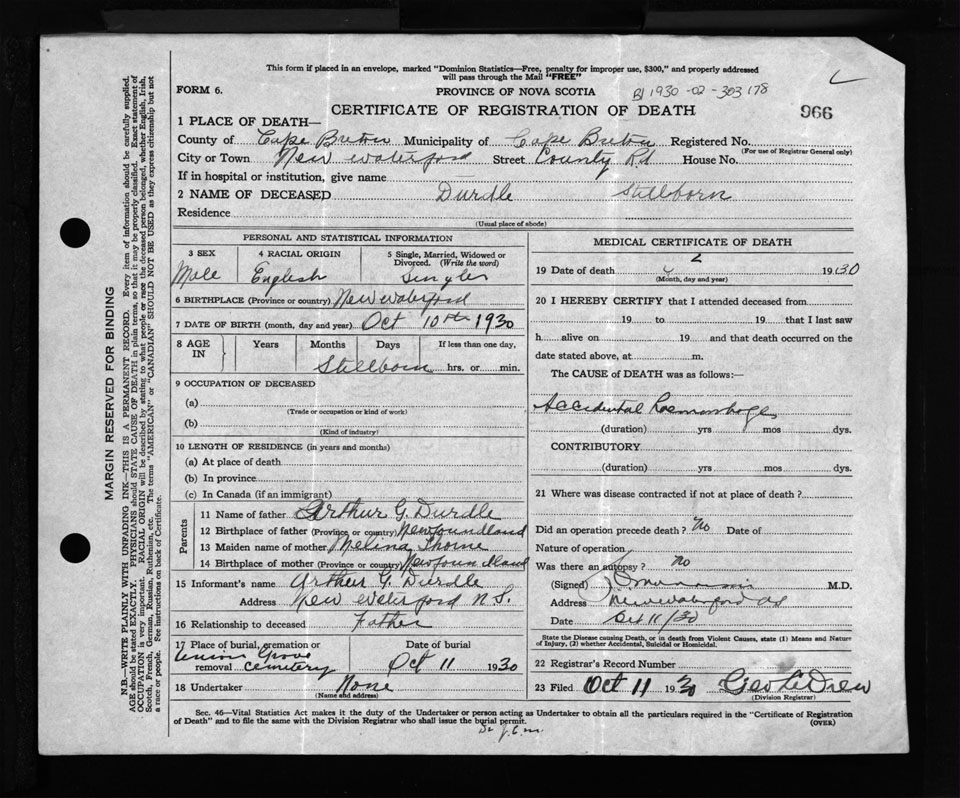 This form if placed in an envelope, marked "Dominion Statistics—Free, penalty for improper use, $300," and properly addressed
will pass through the Mail "FREE"
FORM 6.
PROVINCE OF NOVA SCOTIA
1930-02-303178
CERTIFICATE OF REGISTRATION OF DEATH
966
1 PLACE OF DEATH—
County of Cape Breton Municipality of Cape Breton Registered No.
(For use of Registrar General only)
City or Town New Waterford Street County Rd House No.
If in hospital or institution, give name
2 NAME OF DECEASED Durdle Stillborn
Residence
(Usual place of abode)
PERSONAL AND STATISTICAL INFORMATION
3 SEX 4 RACIAL ORIGIN 5 Single, Married, Widowed or
Divorced. (Write the word)
Male English Single
6 BIRTHPLACE (Province or country) New Waterford
7 DATE OF BIRTH (month, day and year) Oct 10th 1930
8 AGE IN Years Months Days If less than one day,
Stillborn hrs. or min.
9 OCCUPATION OF DECEASED
(a)
(Trade or occupation or kind of work)
(b)
(Kind of industry)
10 LENGTH OF RESIDENCE (in years and months)
(a) At place of death
(b) In province
(c) In Canada (if an immigrant)
Parents
11 Name of father Arthur G. Durdle
12 Birthplace of father (Province or country) Newfoundland
13 Maiden name of mother Melina Thorne
14 Birthplace of mother (Province or country) Newfoundland
15 Informant's name Arthur G. Durdle
Address New Waterford N.S.
16 Relationship to deceased Father
17 Place of burial, cremation or Date of burial
removal Union Grove Cemetery Oct 11 1930
18 Undertaker None
(Name and address)
MEDICAL CERTIFICATE OF DEATH
19 Date of death 1930
(Month, day and year)
20 I HEREBY CERTIFY that I attended deceased from
19 to 19 that I last saw
h alive on 19 and that death occurred on the
date stated above, at m.
The CAUSE of DEATH was as follows:—
Accidental Haemorrhage
(duration) yrs mos dys.
CONTRIBUTORY
(duration) yrs mos dys.
21 Where was disease contracted if not at place of death?
Did an operation precede death? No Date of
Nature of operation
Was there an autopsy? no
(Signed) M.D.
Address New Waterford
Date Oct 11/30
State the Disease causing Death, or in death from Violent Causes, state (1) Means and Nature
of Injury, (2) whether Accidental, Suicidal or Homicidal.
22 Registrar's Record Number
23 Filed Oct 11 1930 Geo Drew
(Division Registrar)
Sec. 46—Vital Statistics Act makes it the duty of the Undertaker or person acting as Undertaker to obtain all the particulars required in the "Certificate of Registration
of Death" and to file the same with the Division Registrar who shall issue the burial permit.
(OVER)
MARGIN RESERVED FOR BINDING
N.B.—WRITE PLAINLY WITH UNFADING INK—THIS IS A PERMANENT RECORD. Every item of information should be carefully supplied.
AGE should be stated EXACTLY. PHYSICIANS should STATE CAUSE OF DEATH in plain terms, so that it may be properly classified. Exact statement of
OCCUPATION is very important. RACIAL ORIGIN will be described by stating to what people or race the deceased person belonged, whether English, Irish,
Scotch, French, German, Russian, Ruthenian, etc. The terms "AMERICAN" or "CANADIAN" SHOULD NOT BE USED as they express citizenship but not
a race or people. See instructions on back of Certificate.